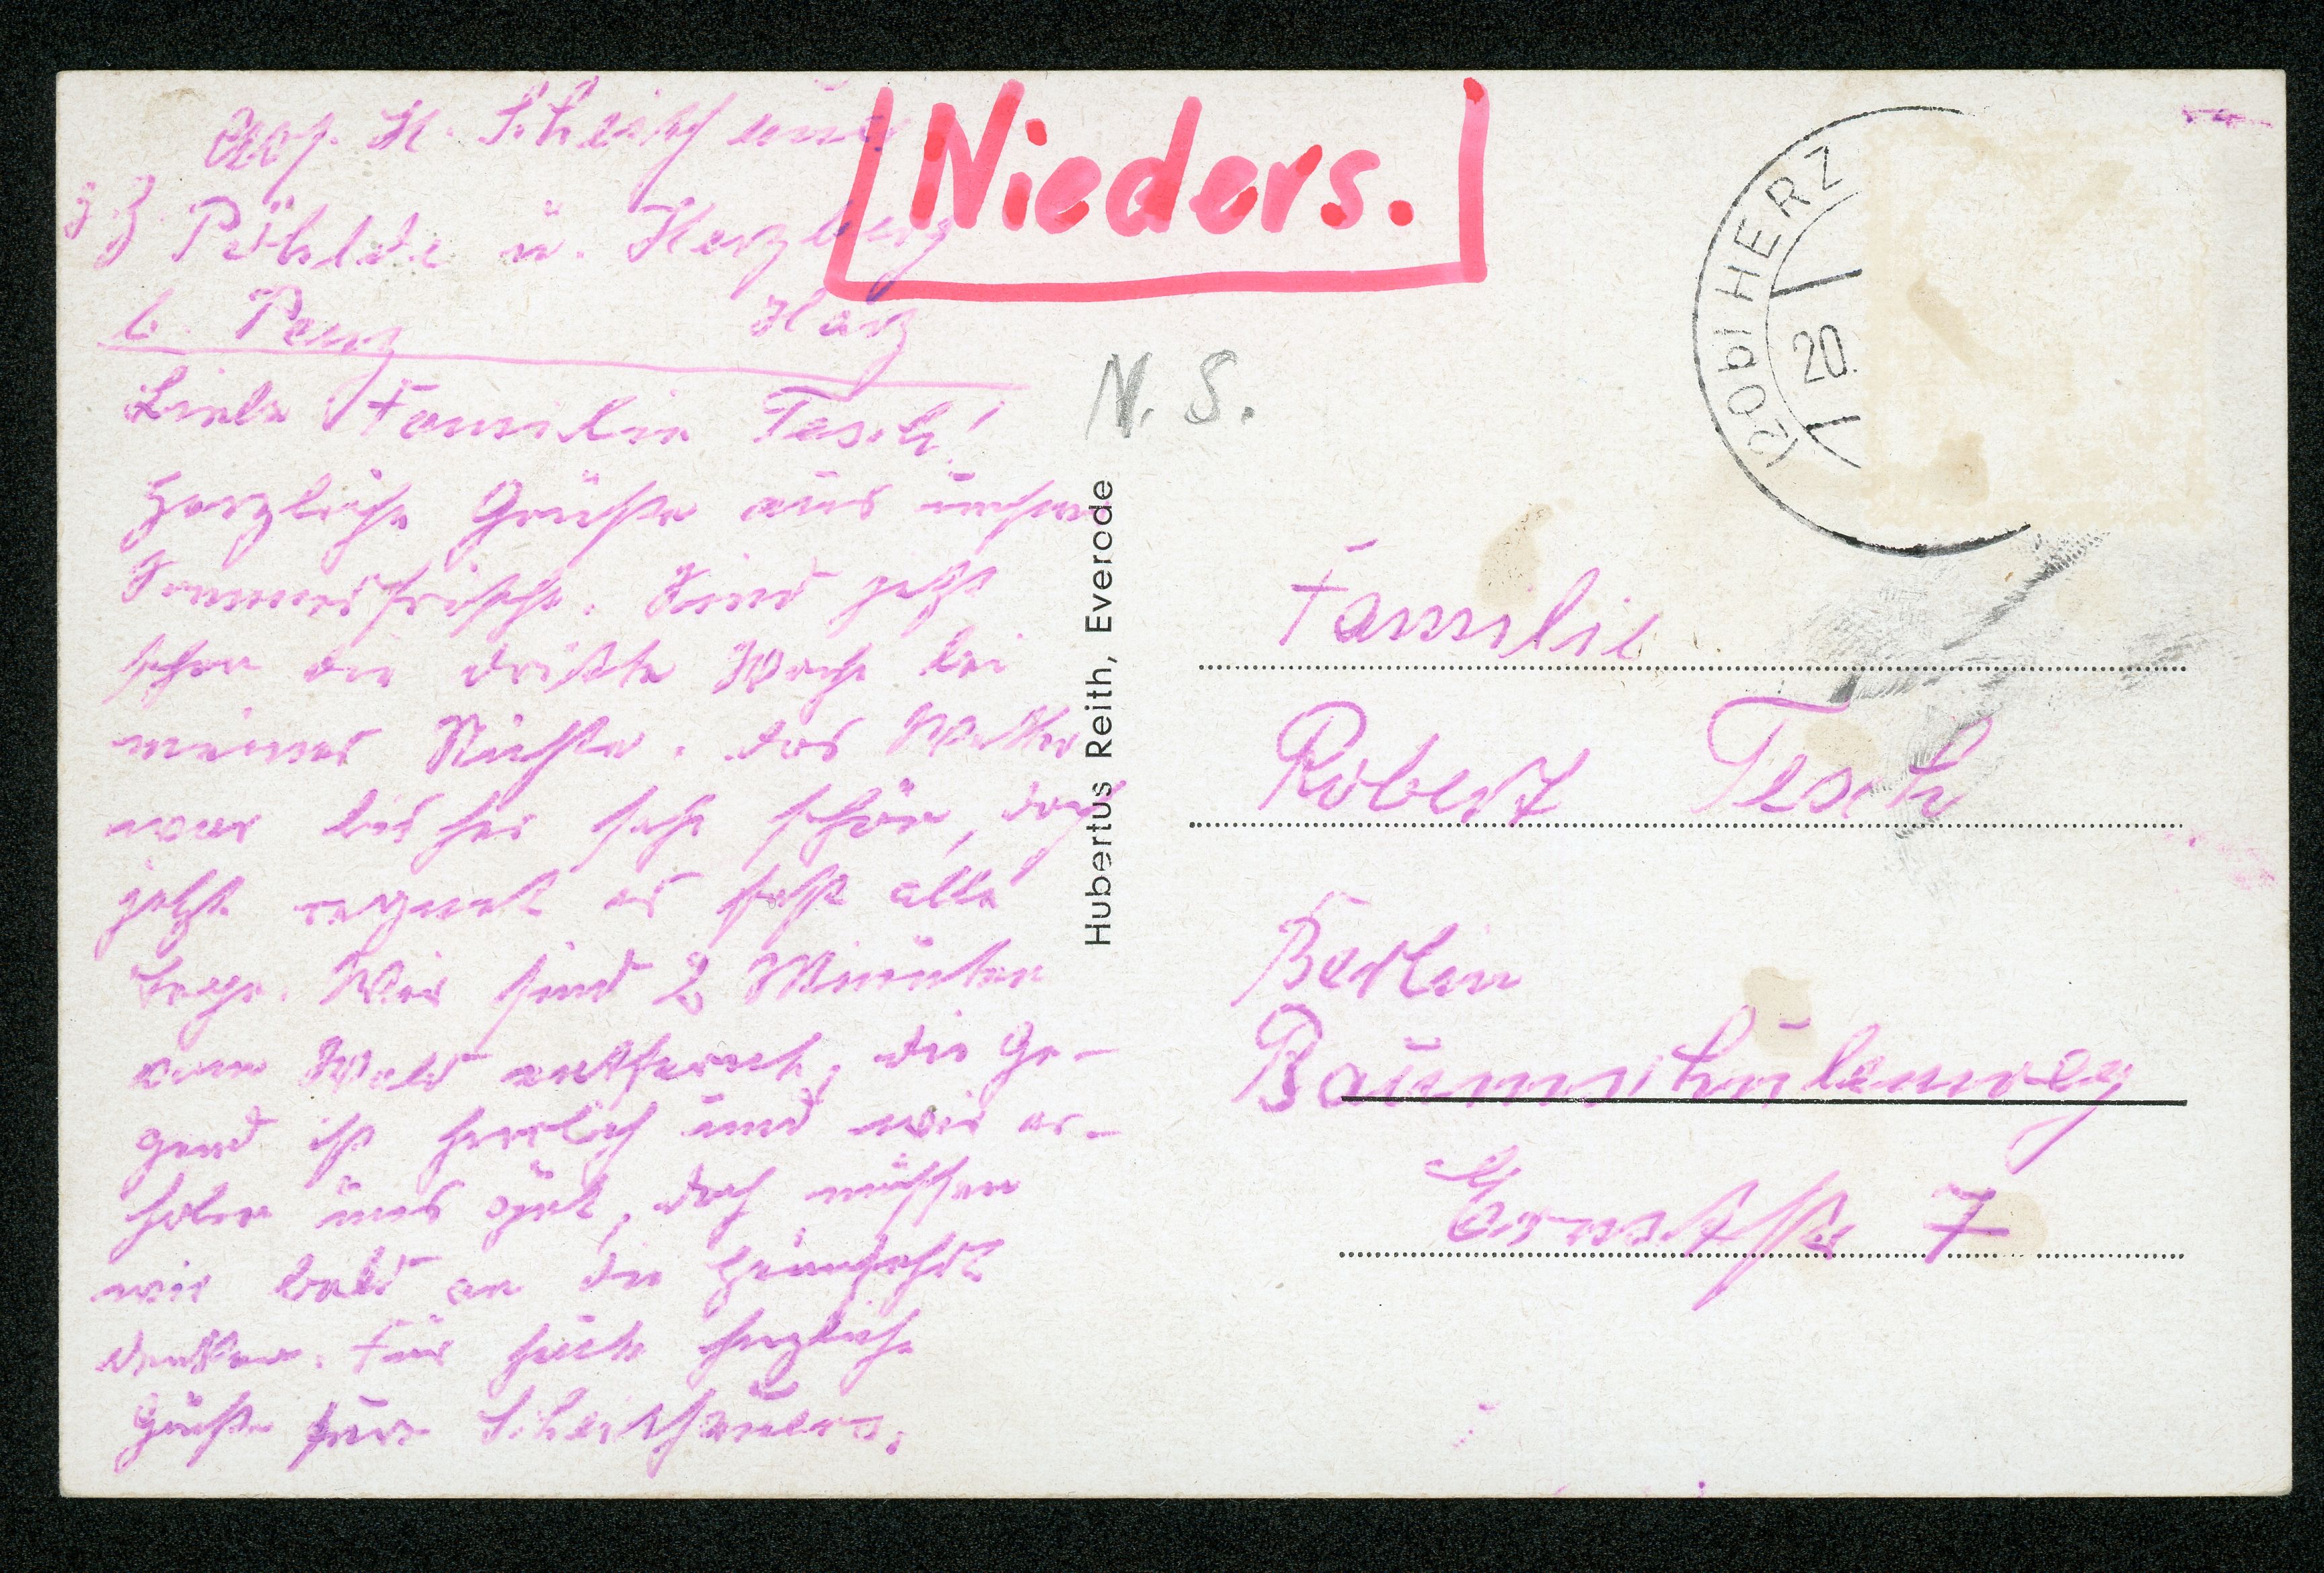 Abs. H. Scheithauer
z. Z. Pöhlde ü. Herzberg
b. Penz Harz
Liebe Familie Tesch!
Herzliche Grüße aus unserer
Sommerfrische. Sind jetzt
schon die dritte Woche bei
meiner Nichte. Das Wetter
war bisher sehr schön, doch
jetzt regnet es fast alle
Tage. Wir sind 2 Minuten
vom Wald entfernt, die Ge-
gend ist herrlich und wir er-
holen uns gut, doch müssen
wir bald an die Heimfahrt
denken. Für heute herzliche
Grüße Eure Scheithauers.
Nieders.
N. S.
Hubertus Reith, Everode
(20b) HERZ
20.
Familie
Robert Tesch
Berlin
Baumschulenweg
Ernststr 7